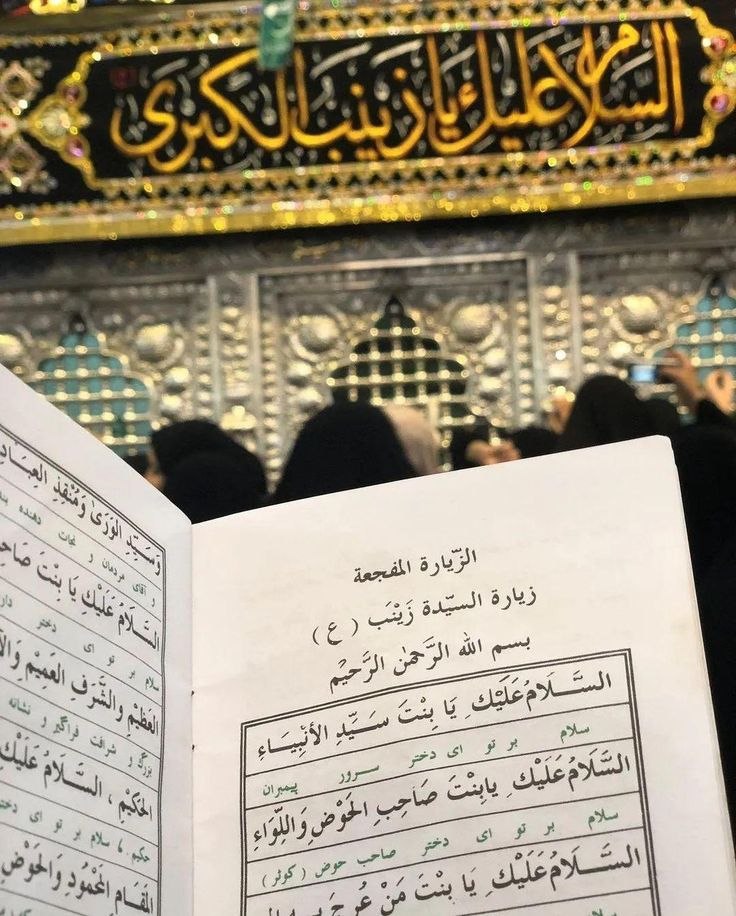 السلام عليك يا زينب الكبرى
الزّيارة المفجعة
زيارة السيّدة زَيْنَب ( ع )
بسم الله الرَّحمٰن الرَّحيْم
السَّـــلَامُ عَلَيْكِ يَا بِنْتَ سَـيِّدِ الأَنْبِيَـاءِ
سلام بر تو ای دختر سرور پیمبران
السَّلَامُ عَلَيْكِ يابِنْتَ صَاحِبِ الحَوْضِ وَاللِّوَاءِ
سلام بر تو ای دختر صاحب حوض ( کوثر )
السَّـــلَامُ عَلَيْكِ يَا بِنْتَ مَنْ عُرِجَ بِهِ
وَسَيِّدِ الوَرَىٰ وَمُنْقِذِ العِبَـادِ
و آقای مردمان و نجات دهنده
السَّلَامُ عَلَيْكِ يَا بِنْتَ صَاحِ
سلام بر تو ای دختر
العَظِيْمِ والشَّرَفِ العَمِيْمِ وَ
بزرگ و شرافت فراگیر و نشانه
الحَكِيْمِ ، السَّلَامُ عَلَيْكِ
حکیم ، سلام بر تو ای دختر
المَقَامِ المَحْمُودِ وَالحَوْضِ